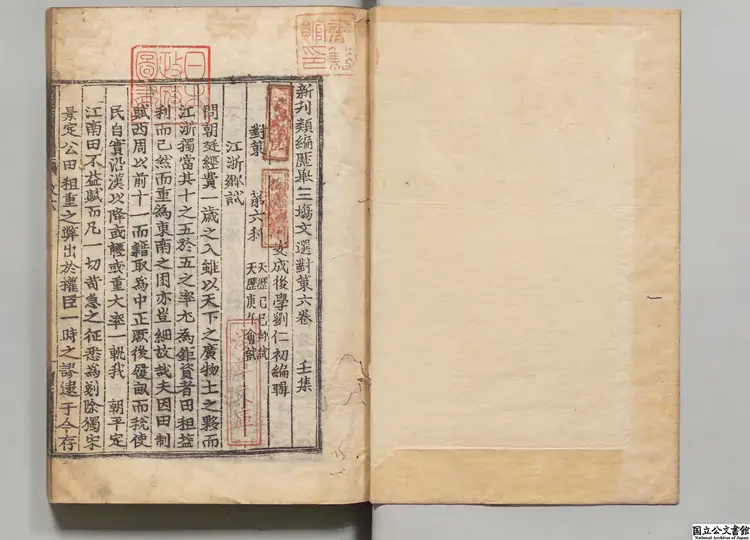 新刊類編歷舉三場文選對策六卷 壬集
安成後學劉仁初編輯
對策 第六科 天曆己巳鄉試
天曆庚午會試
江浙鄉試
問朝廷經費一歲之入雖以天下之廣物土之夥而
江浙獨當其十之五於五之率尤為鉅貲者田租益
利而已然而重為東南之困亦豈細故哉夫因田制
賦西周以前十一而籍取為中正厥後履畝而稅使
民自實沿漢以降或輕或重大率一軌我 朝平定
江南田不益賦而凡一切苛急之征悉為剗除獨宋
景定公田租重之弊出於權臣一時之謬逮于今存
日本
政府
圖書
國立公文書館
National Archives of Japan